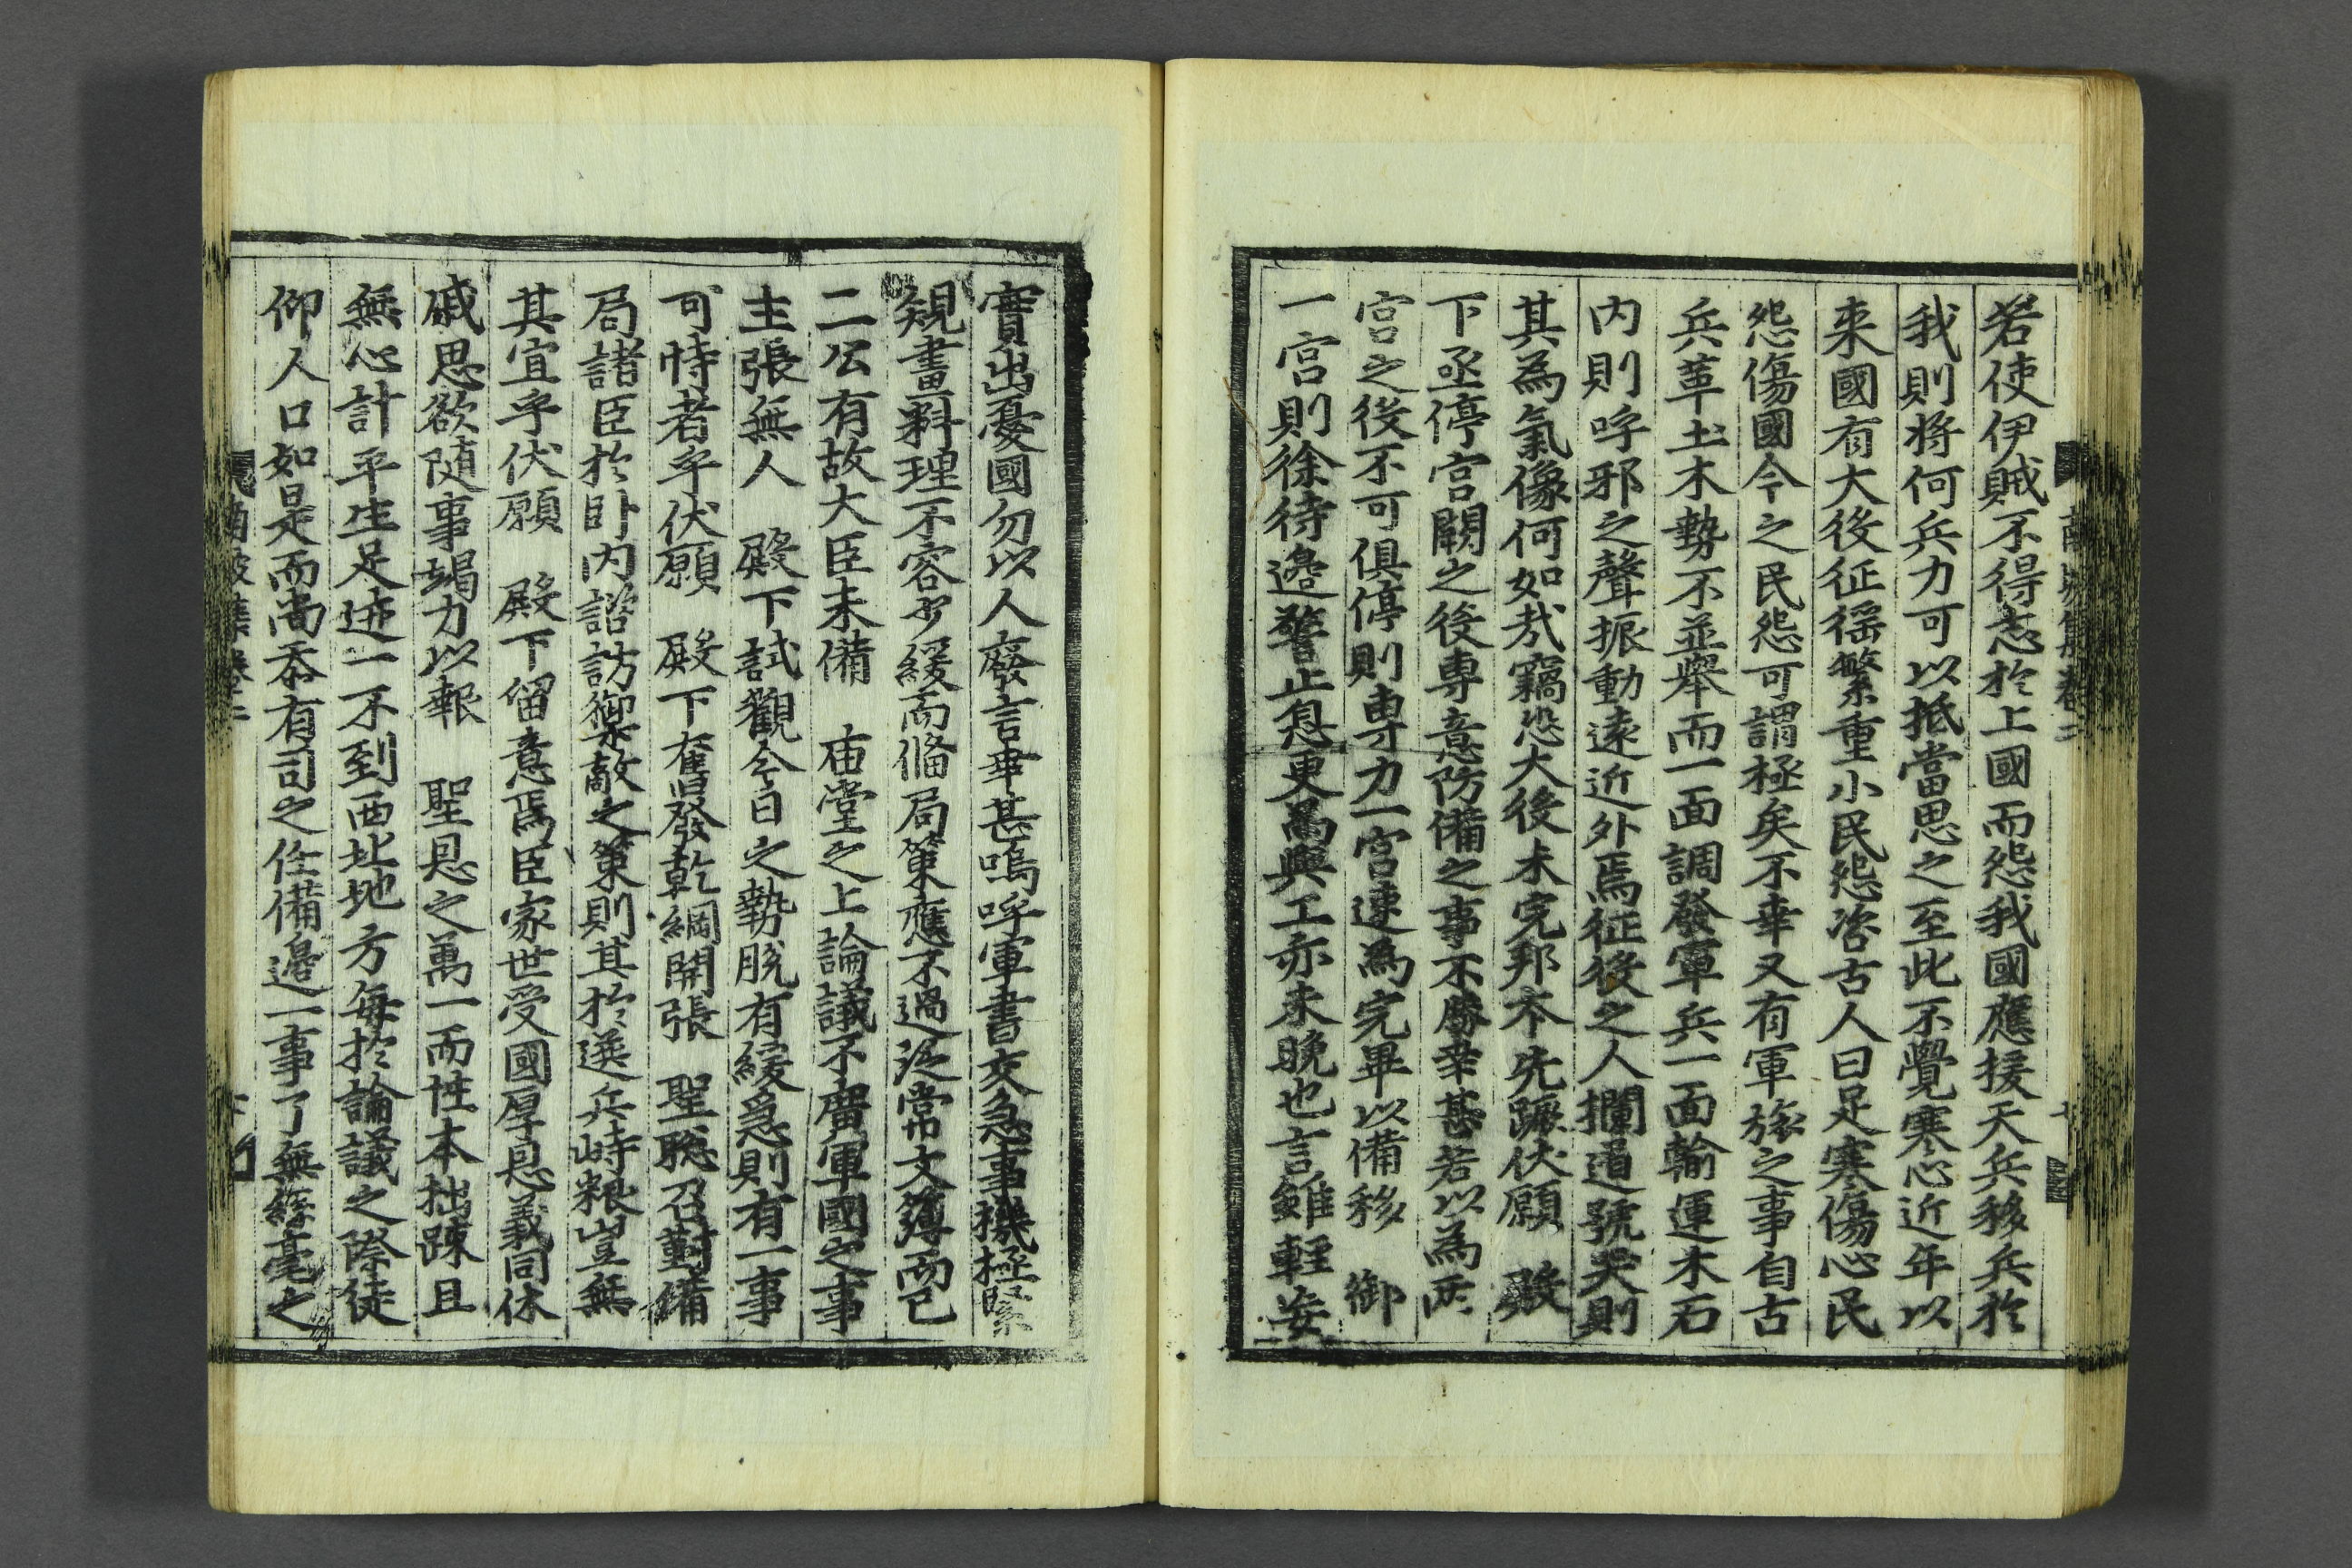 若使伊賊不得志於上國而怨我國應援天兵移兵於
我則將何兵力可以抵當思之至此不覺寒心近年以
来國有大役征徭繁重小民怨咨古人曰足寒傷心民
怨傷國今之民怨可謂極矣不幸又有軍旅之事自古
兵革土木勢不並舉而一面調發軍兵一面輸運木石
内則呼邪之聲振動遠近外焉征役之人攔道號哭則
其為氣像何如㢤竊恐大役未完邦夲先蹶伏願 殿
下亟停宫闕之役專意防備之事不勝幸甚若以為兩
宫之役不可俱停則専力一宫速為完畢以備移 御
一宫則徐待邊警止息更為興工亦未晚也言雖輕妄
實出憂國勿以人廢言幸甚嗚呼軍書交急事機極緊
䂓畫料理不容少緩而俻局策應不過泛常文簿而已
二公有故大臣未備 庙堂之上論議不廣軍國之事
主張無人 殿下試觀今日之勢脫有緩急則有一事
可恃者乎伏願 殿下奮發乾綱開張 聖聡召對備
局諸臣於卧内諮訪禦敵之策則其於選兵峙粮豈無
其宜乎伏願 殿下留意焉臣家世受國厚恩義同休
戚思欲随事竭力以報 聖恩之萬一而性本拙踈且
無心計平生足迹一不到西北地方每於論議之際徒
仰人口如是而尚忝有司之任備邊一事了無絲毫之